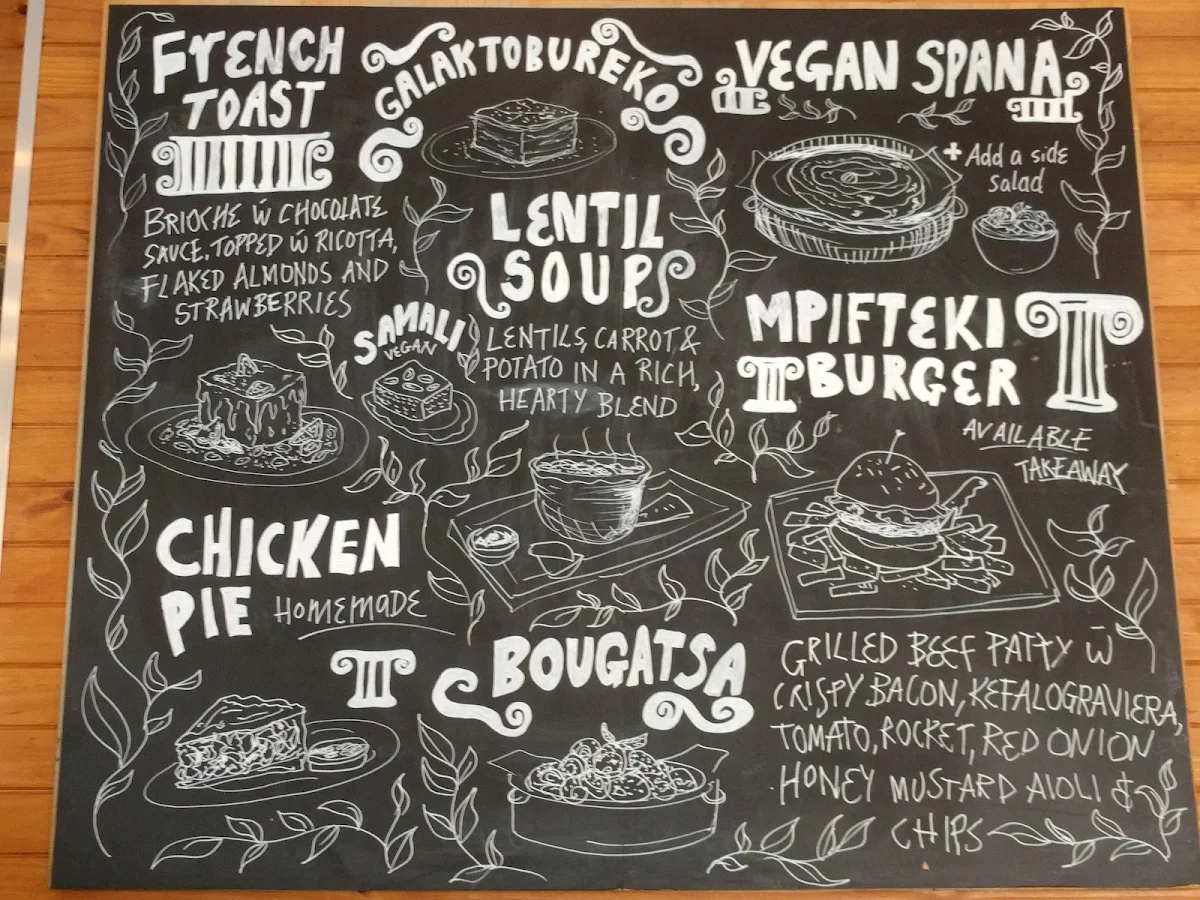 FRENCH
TOAST
BRIOCHE W̄ CHOCOLATE
SAUCE, TOPPED W̄ RICOTTA,
FLAKED ALMONDS AND
STRAWBERRIES
GALAKTOBUREKO
LENTIL
SOUP
LENTILS, CARROT &
POTATO IN A RICH,
HEARTY BLEND
SAMALI
VEGAN
VEGAN SPANA
+ Add a side
salad
MPIFTEKI
BURGER
AVAILABLE
TAKEAWAY
GRILLED BEEF PATTY W̄
CRISPY BACON, KEFALOGRAVIERA,
TOMATO, ROCKET, RED ONION
HONEY MUSTARD AIOLI &
CHIPS
CHICKEN
PIE HOMEMADE
BOUGATSA